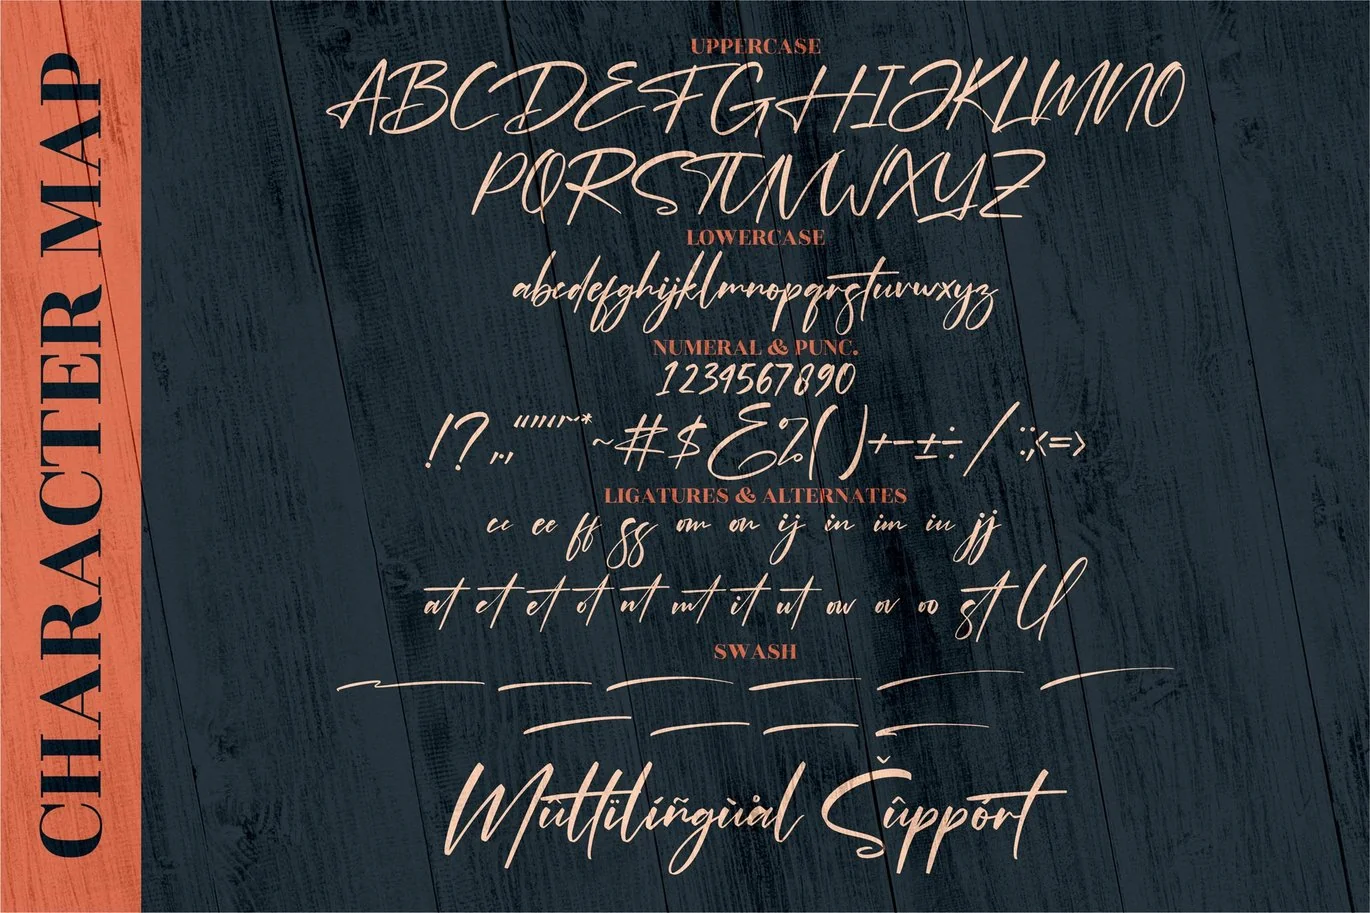 CHARACTER MAP
UPPERCASE
ABCDEFGHIJKLMNO
PQRSTUVWXYZ
LOWERCASE
abcdefghijklmnopqrstuvwxyz
NUMERAL & PUNC.
1234567890
!?.,"""'~*~#$&%()+-±÷/:;<=>
LIGATURES & ALTERNATES
cc ee ff gg om on ij in im iu jj
at ct et ot nt mt it ut ow ov oo st ll
SWASH
Mûttilíñgùål Šûppórt